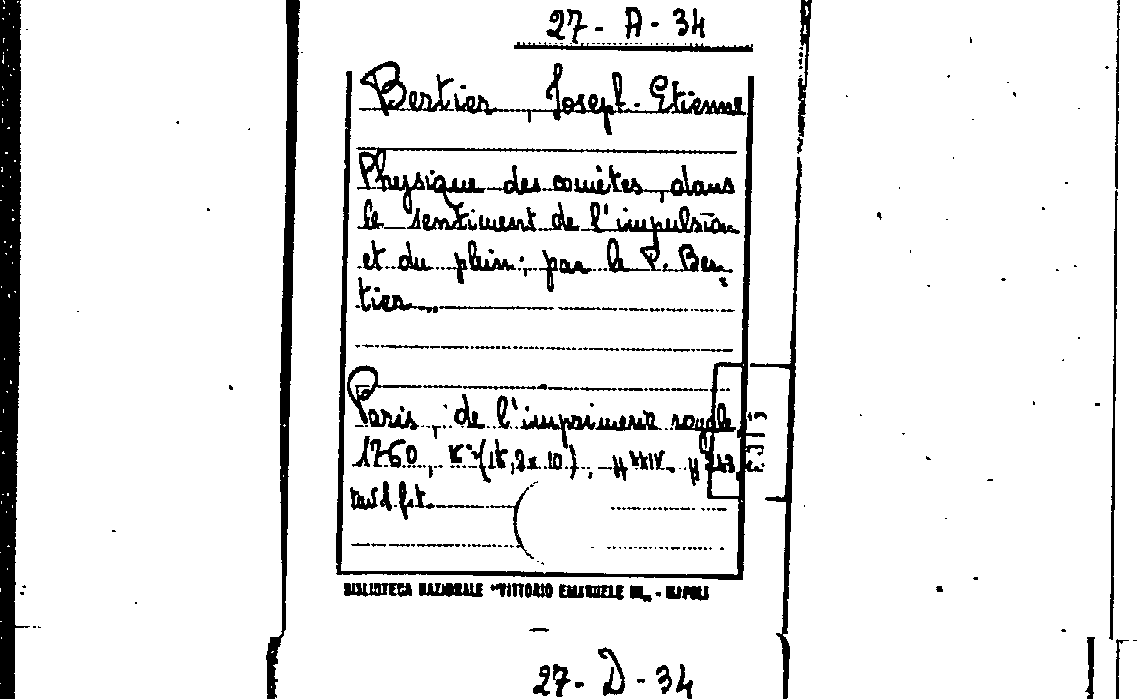 27 - A - 34
Bertier, Joseph-Etienne
Physique des comètes, dans
le sentiment de l'impulsion
et du plein; par le P. Ber
tier...
Paris, de l'imprimerie royale,
1760,
BIBLIOTECA NAZIONALE "VITTORIO EMANUELE III" - NAPOLI
27 - D - 34